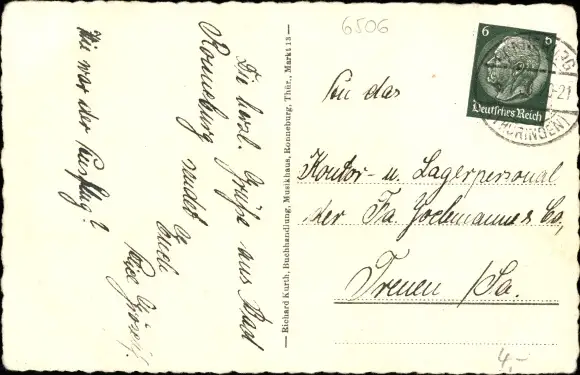 Die herzl. Grüße aus Bad
Ronneburg sendet
Euch
Wie war der Ausflug?
— Richard Kurth, Buchhandlung, Musikhaus, Ronneburg, Thür., Markt 13 —
6506
6 6
Deutsches Reich
(THÜRINGEN)
An das
Kontor- u. Lagerpersonal
der Fa. & Co,
Treuen /Sa.
4,-